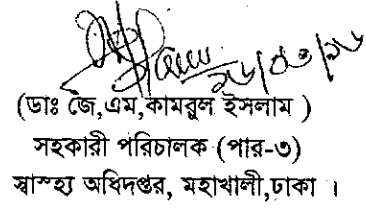 ২৮/০৩/২৮
(ডাঃ জে,এম,কামরুল ইসলাম )
সহকারী পরিচালক (পার-৩)
স্বাস্হ্য অধিদপ্তর, মহাখালী,ঢাকা ।